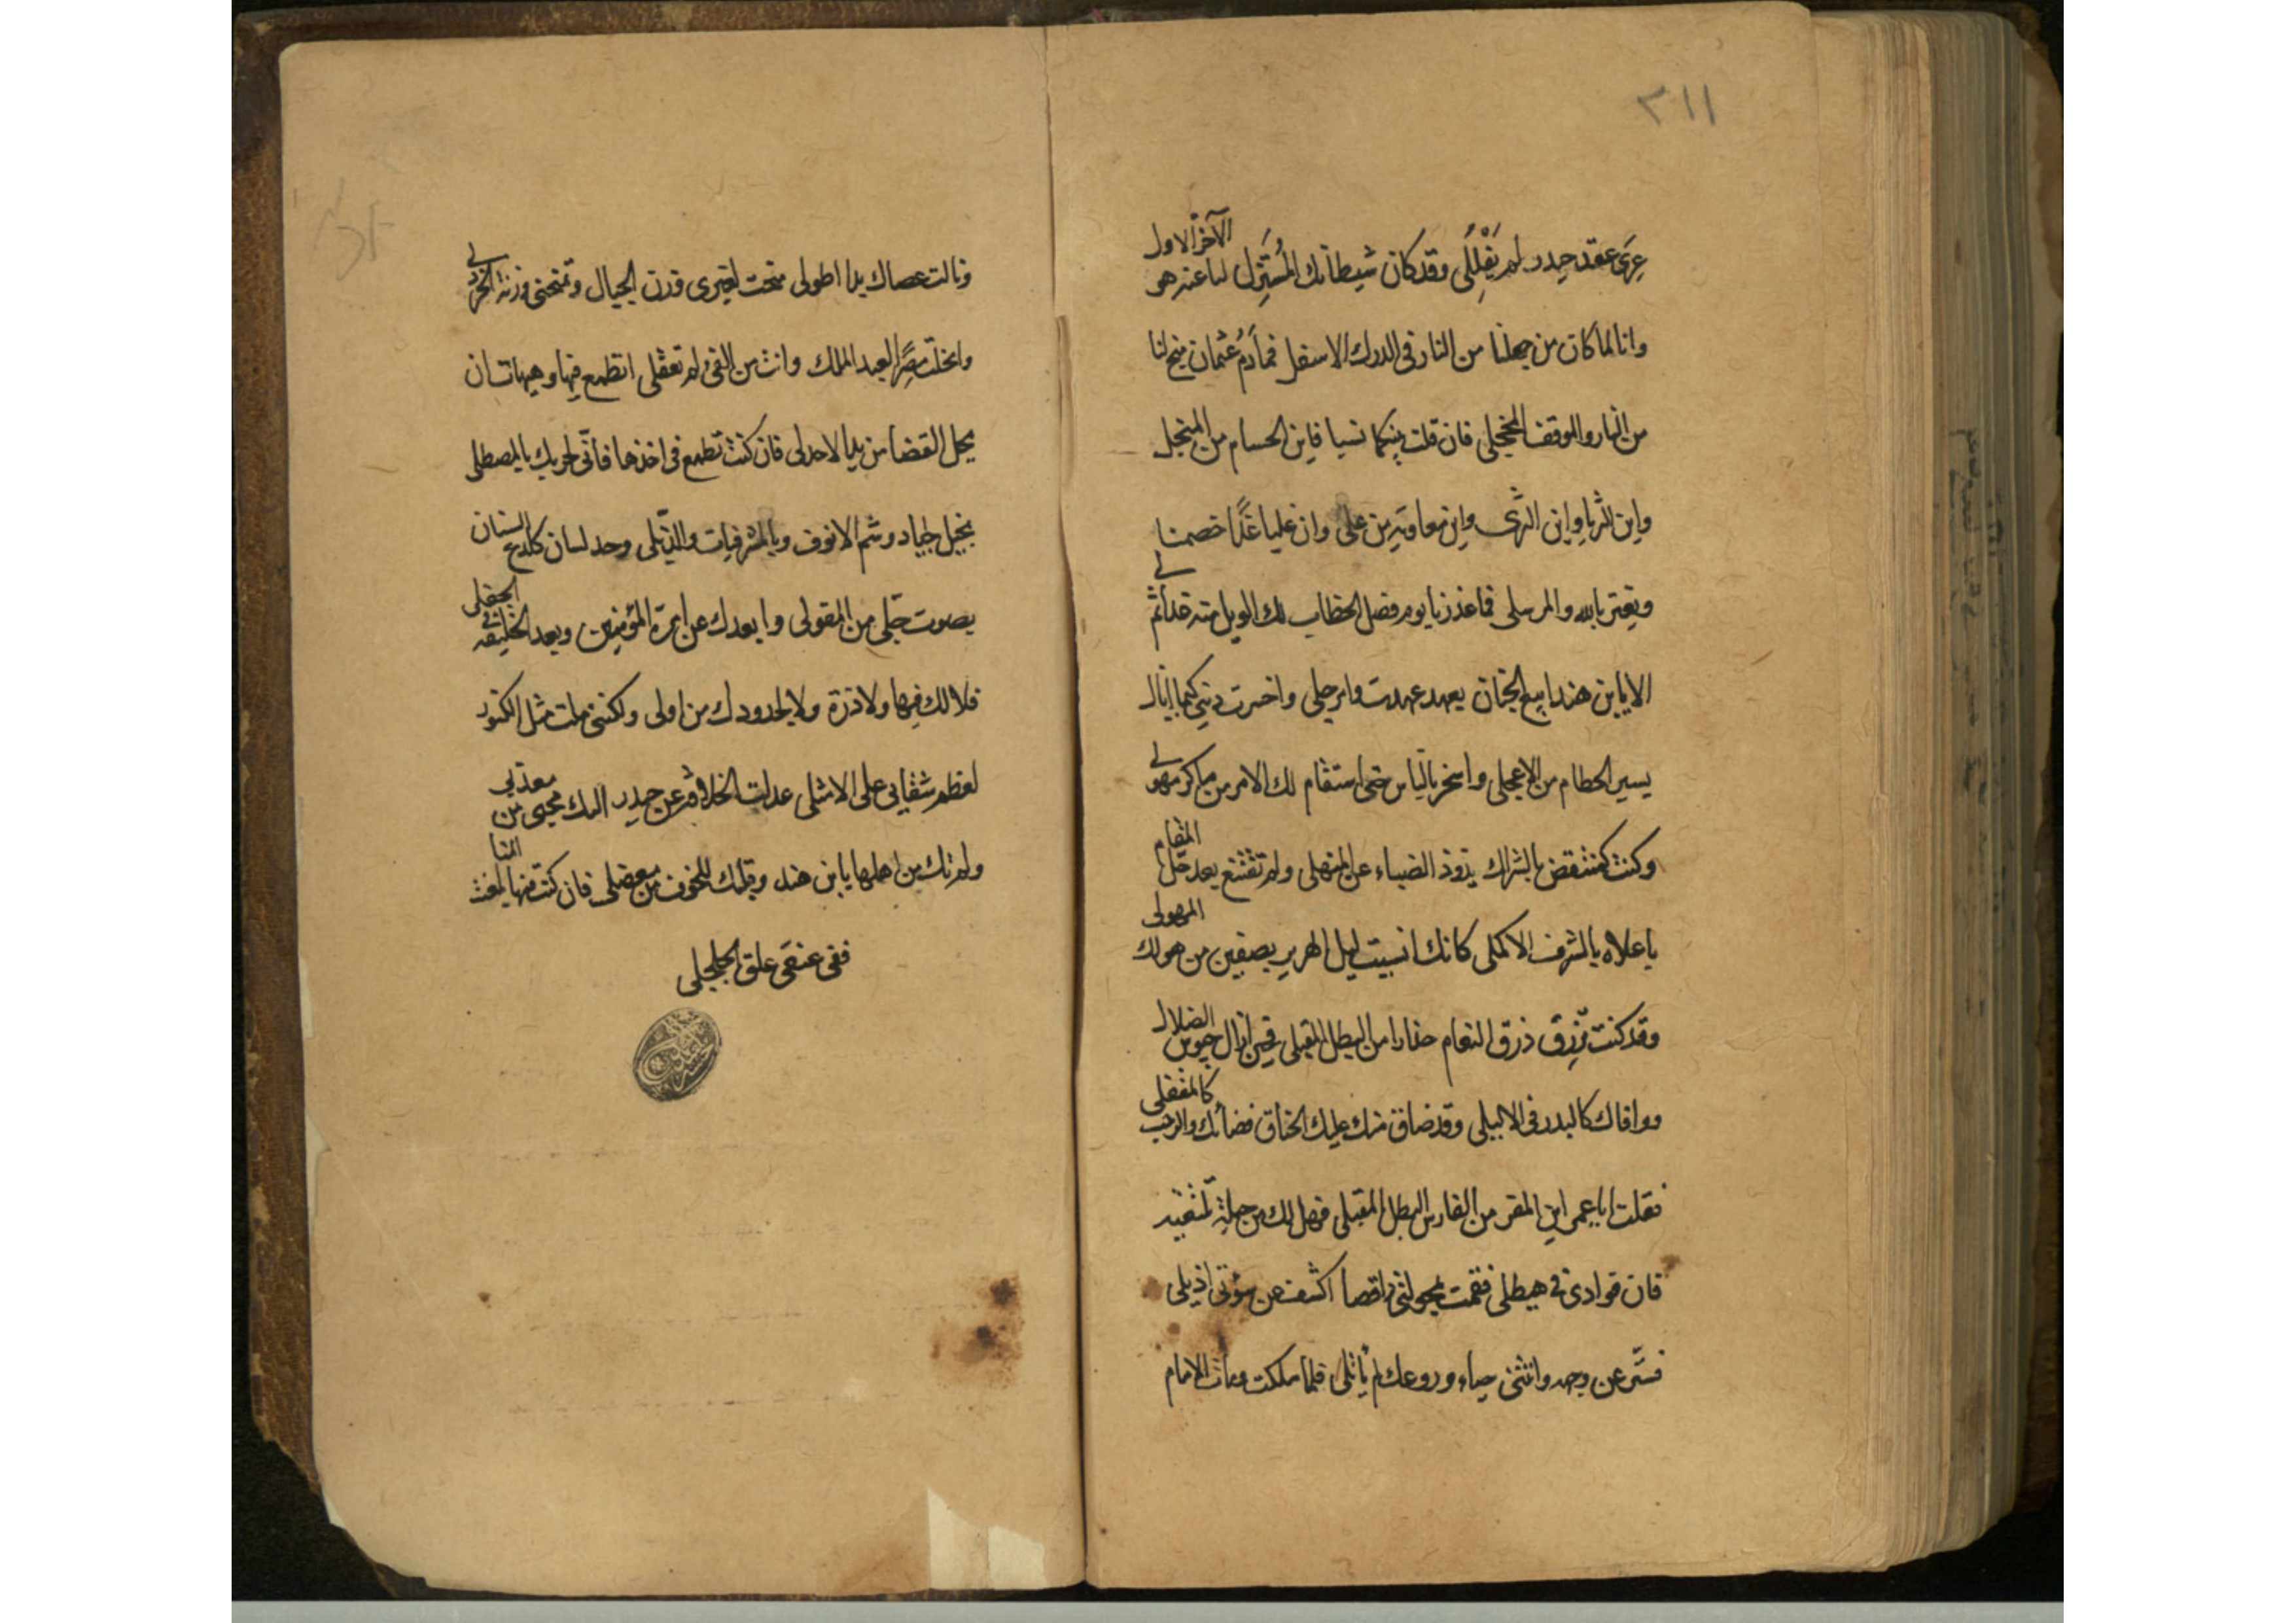 ٣١١
عرى عقد حيدر لم يَفْلِلُى وقد كان شيطانك المُستَزِل لنا عنه هو الآخر الاول
وانا لما كان من جهلنا من النار فى الدرك الاسفل فما دَمُ عثمان منج لنا
من النار والموقف المخجلى فان قلت بينكما نسبا فاين الحسام من المنجل
واين الثريا واين الثرى واين معاويه من على وان عليا غدًا خصمنا
ويعتز بالله والمرسلى فما عذرنا يوم فصل الخطاب لك الويل منه غدا ثم لى
الا يا بن هند ابيع الجنان بعهد عهدت وابرحلى واخسرت دينى كيما اينال
يسير الحطام من الاعجلى واسخر بالناس حتى استقام لك الامر من ماكر مهولى
وكنت كمنتقض بالشراك يذوذ الضباء عن المنهلى ولم تقتنع بعد حل المقام
باعلاه بالشرف الاكملى كانك انسيت ليل الهرير بصفين من هولك المهولى
وقد كنت تزرق ذرق النعام حذارا من البطل المقبلى فحين ازال جيوش الضلال
ووافاك كالبدر فى الاليلى وقد ضاق منك عليك الخناق فضائك والرحب كالمغفلى
فقلت ايا عمر اين المفر من الفارس البطل المقبلى فهل لك من حيلة تستفيد
فان فوادى فى هيطلى فقمت بحولتى راقصا اكشف عن سوئتى اذيلى
فستر عن وجهه وانثنى حياء وروعك لم ياتلى فلما ملكت ومات الامام
ونالت عصاك يدا اطولى منحت لغيرى وزن الجبال وتمنحنى وزنة الخردلى
وانحلت مصرًا لعبد الملك وانت من الغى لم تعقلى اتطمع فيها وهيهات ان
يحل القضا من يدا لاحدلى فان كنت تطمع فى اخذها فأنّى لحربك يا لمصطلى
بخيل جياد وشم الانوف وبالمشرفيات والذبلى وحد لسان كلدع السنان
بصوت جلى من المقولى وابعدك عن امرة المؤمنين وبعد الخليفة فى الجحفلى
فلا لك فيها ولا ذرة ولا لجدودك من اولى ولكننى ملت مثل الكنود
لعظم شقايى على الامثلى عدلت الخلافة عن حيدر اليك محيى من معذبى
ولم تك من اهلها يا بن هند وقبلك للخوف من معضلى فان كنت منها بلغت المنا
ففى عنقى علق الجلجلى